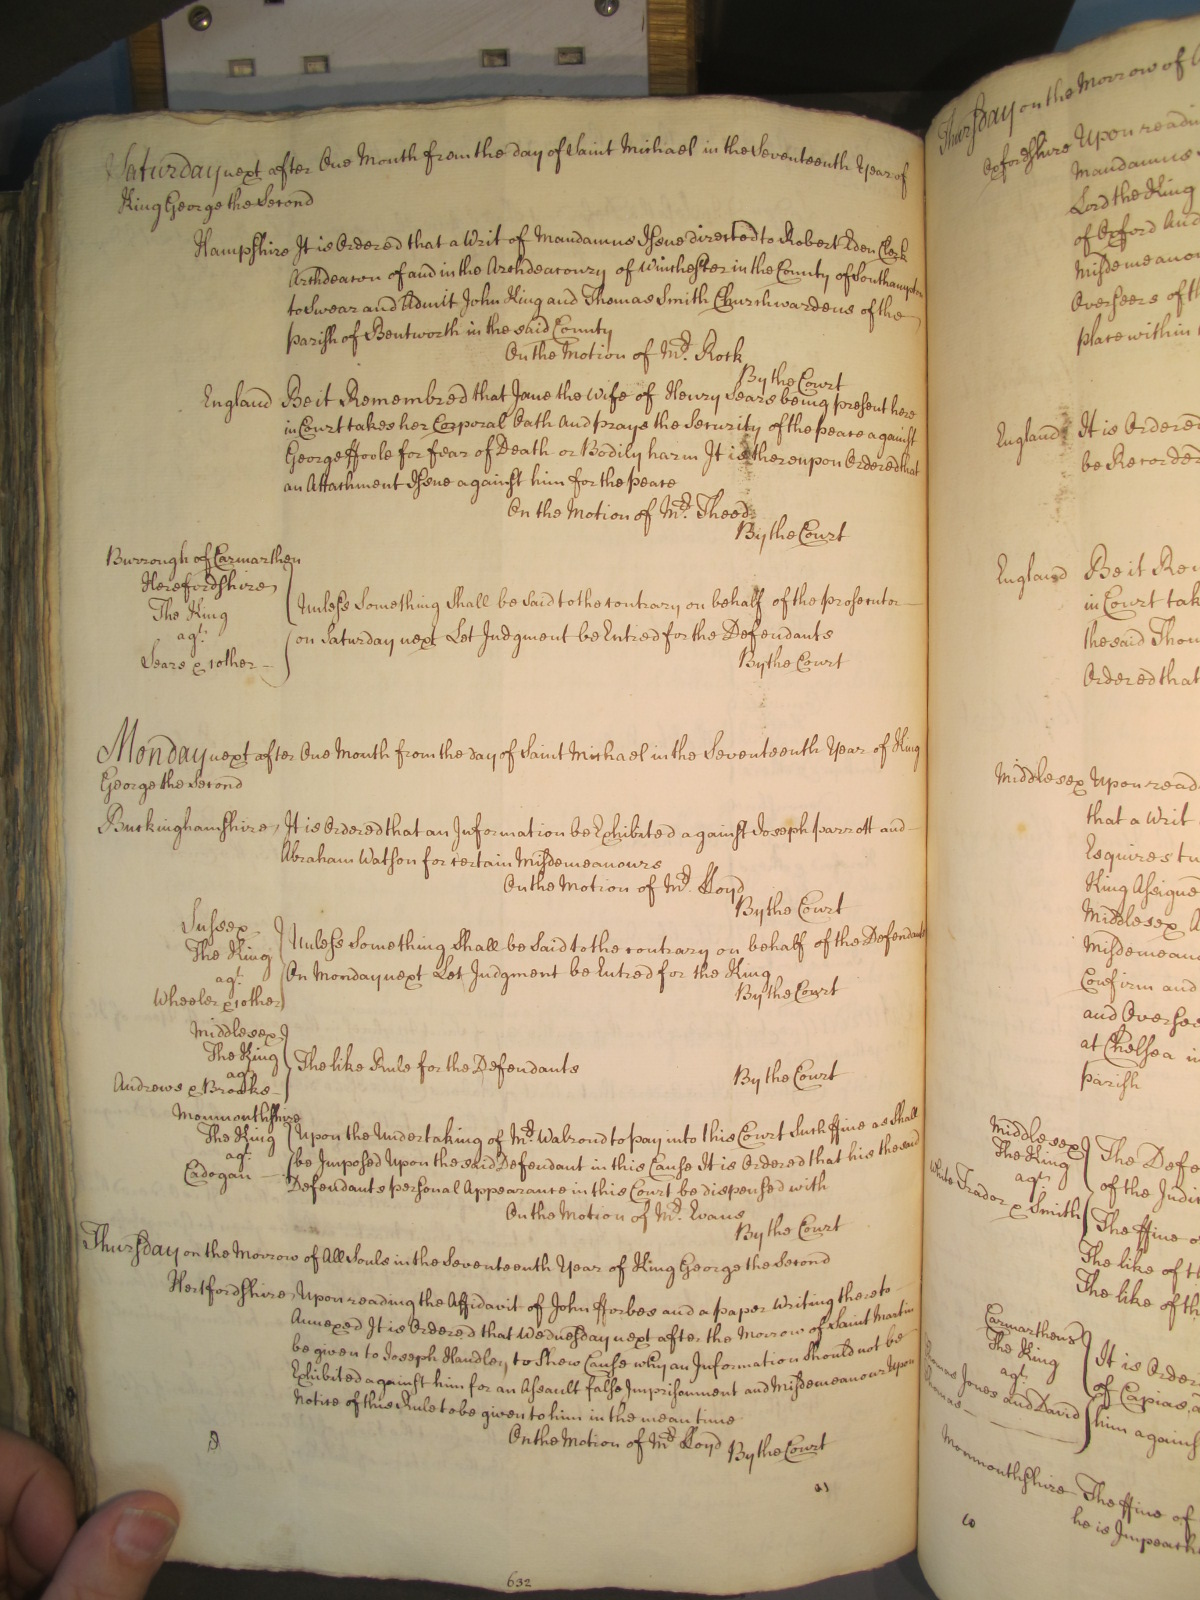 Saturday next after One Month from the day of Saint Michael in the Seventeenth Year of
King George the Second
Hampshire It is Ordered that a Writ of Mandamus Issue directed to Robert Eden Clerk
Archdeacon of and in the Archdeaconry of Winchester in the County of Southampton
to Swear and Admit John King and Thomas Smith Churchwardens of the
parish of Bentworth in the said County
On the Motion of Mr. Rock
By the Court
England Be it Remembred that Jane the Wife of Henry Sears being present here
in Court takes her Corporal Oath And prays the Security of the peace against
George ffoole for fear of Death or Bodily harm It is thereupon Ordered that
an Attachment Issue against him for the peace
On the Motion of Mr. Theed
By the Court
Burrough of Carmarthen
Herefordshire
The King
agt.
Sears & 1 other
Unless Something Shall be Said to the contrary on behalf of the prosecutor
on Saturday next Let Judgment be Entred for the Defendants
By the Court
Monday next after One Month from the day of Saint Michael in the Seventeenth Year of King
George the Second
Buckinghamshire, It is Ordered that an Information be Exhibited against Joseph parrott and
Abraham Watson for certain Misdemeanours
On the Motion of Mr. Lloyd
By the Court
Sussex
The King
agt.
Wheeler & 1 other
Unless Something Shall be Said to the contrary on behalf of the Defendants
On Monday next Let Judgment be Entred for the King
By the Court
Middlesex
The King
agt.
Andrews & Brooks
The like Rule for the Defendants
By the Court
Monmouthshire
The King
agt.
Cadogan
Upon the Undertaking of Mr. Walrond to pay into this Court Such ffine as Shall
be Imposed Upon the said Defendant in this Cause It is Ordered that his the said
Defendants personal Appearance in this Court be dispensed with
On the Motion of Mr. Evans
By the Court
Thursday on the Morrow of All Souls in the Seventeenth Year of King George the Second
Hertfordshire, Upon reading the Affidavit of John fforbes and a paper Writing thereto
Annexed It is Ordered that Wednesday next after the Morrow of Saint Martin
be given to Joseph Handley to Shew Cause why an Information Should not be
Exhibited against him for an Assault false Imprisonment and Misdemeanour Upon
Notice of this Rule to be given to him in the mean time
On the Motion of Mr. Lloyd
By the Court
632
Thursday on the Morrow of
Oxfordshire Upon readi
Mandamus
Lord the King
of Oxford And
Misdemeanou
Overseers of th
place within
England It is Ordered
be Recorded
England Be it Rem
in Court tak
the said Thom
Ordered that
Middlesex Upon read
that a Writ
Esquires tw
King Assigne
Middlesex A
Misdemean
Confirm and
and Oversee
at Chelsea in
parish
Middlesex
The King
agt.
White Trador & Smith
The Defe
of the Judi
The ffine o
The like of th
The like of the
Carmarthens
The King
agt.
Thomas Jones and David
Thomas
It is Order
of Capias
him agains
Monmouthshire The ffine of
he is Impeach